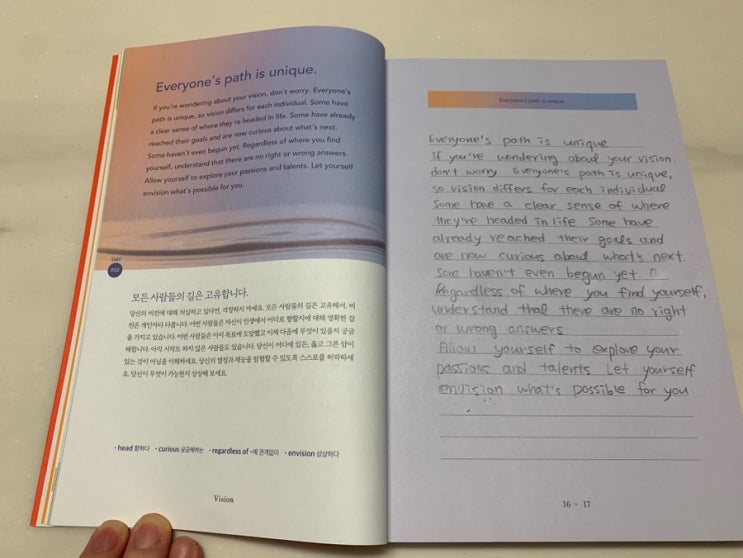 Everyone's path is unique.
If you're wondering about your vision, don't worry. Everyone's
path is unique, so vision differs for each individual. Some have
a clear sense of where they're headed in life. Some have already
reached their goals and are now curious about what's next.
Some haven't even begun yet. Regardless of where you find
yourself, understand that there are no right or wrong answers.
Allow yourself to explore your passions and talents. Let yourself
envision what's possible for you.
DAY
002
모든 사람들의 길은 고유합니다.
당신의 비전에 대해 의심하고 있다면, 걱정하지 마세요. 모든 사람들의 길은 고유해서, 비
전은 개인마다 다릅니다. 어떤 사람들은 자신이 인생에서 어디로 향할지에 대해 명확한 감
을 가지고 있습니다. 어떤 사람들은 이미 목표에 도달했고 이제 다음에 무엇이 있을지 궁금
해합니다. 아직 시작도 하지 않은 사람들도 있습니다. 당신이 어디에 있든, 옳고 그른 답이
있는 것이 아님을 이해하세요. 당신의 열정과 재능을 탐험할 수 있도록 스스로를 허락하세
요. 당신이 무엇이 가능한지 상상해 보세요.
• head 향하다 • curious 궁금해하는 • regardless of ~에 관계없이 • envision 상상하다
Vision
Everyone's path is unique
Everyone's path is unique
If you're wondering about your vision.
don't worry. Everyone's path is unique,
so vision differs for each individual
Some have a clear sense of where
they've headed in life Some have
already reached their goals and
are now curious about what's next.
Some haven't even begun yet.
Regardless of where you find yourself,
understand that there are no right
or wrong answers
Allow yourself to explore your
passions and talents Let yourself
envision what's possible for you.
16 • 17